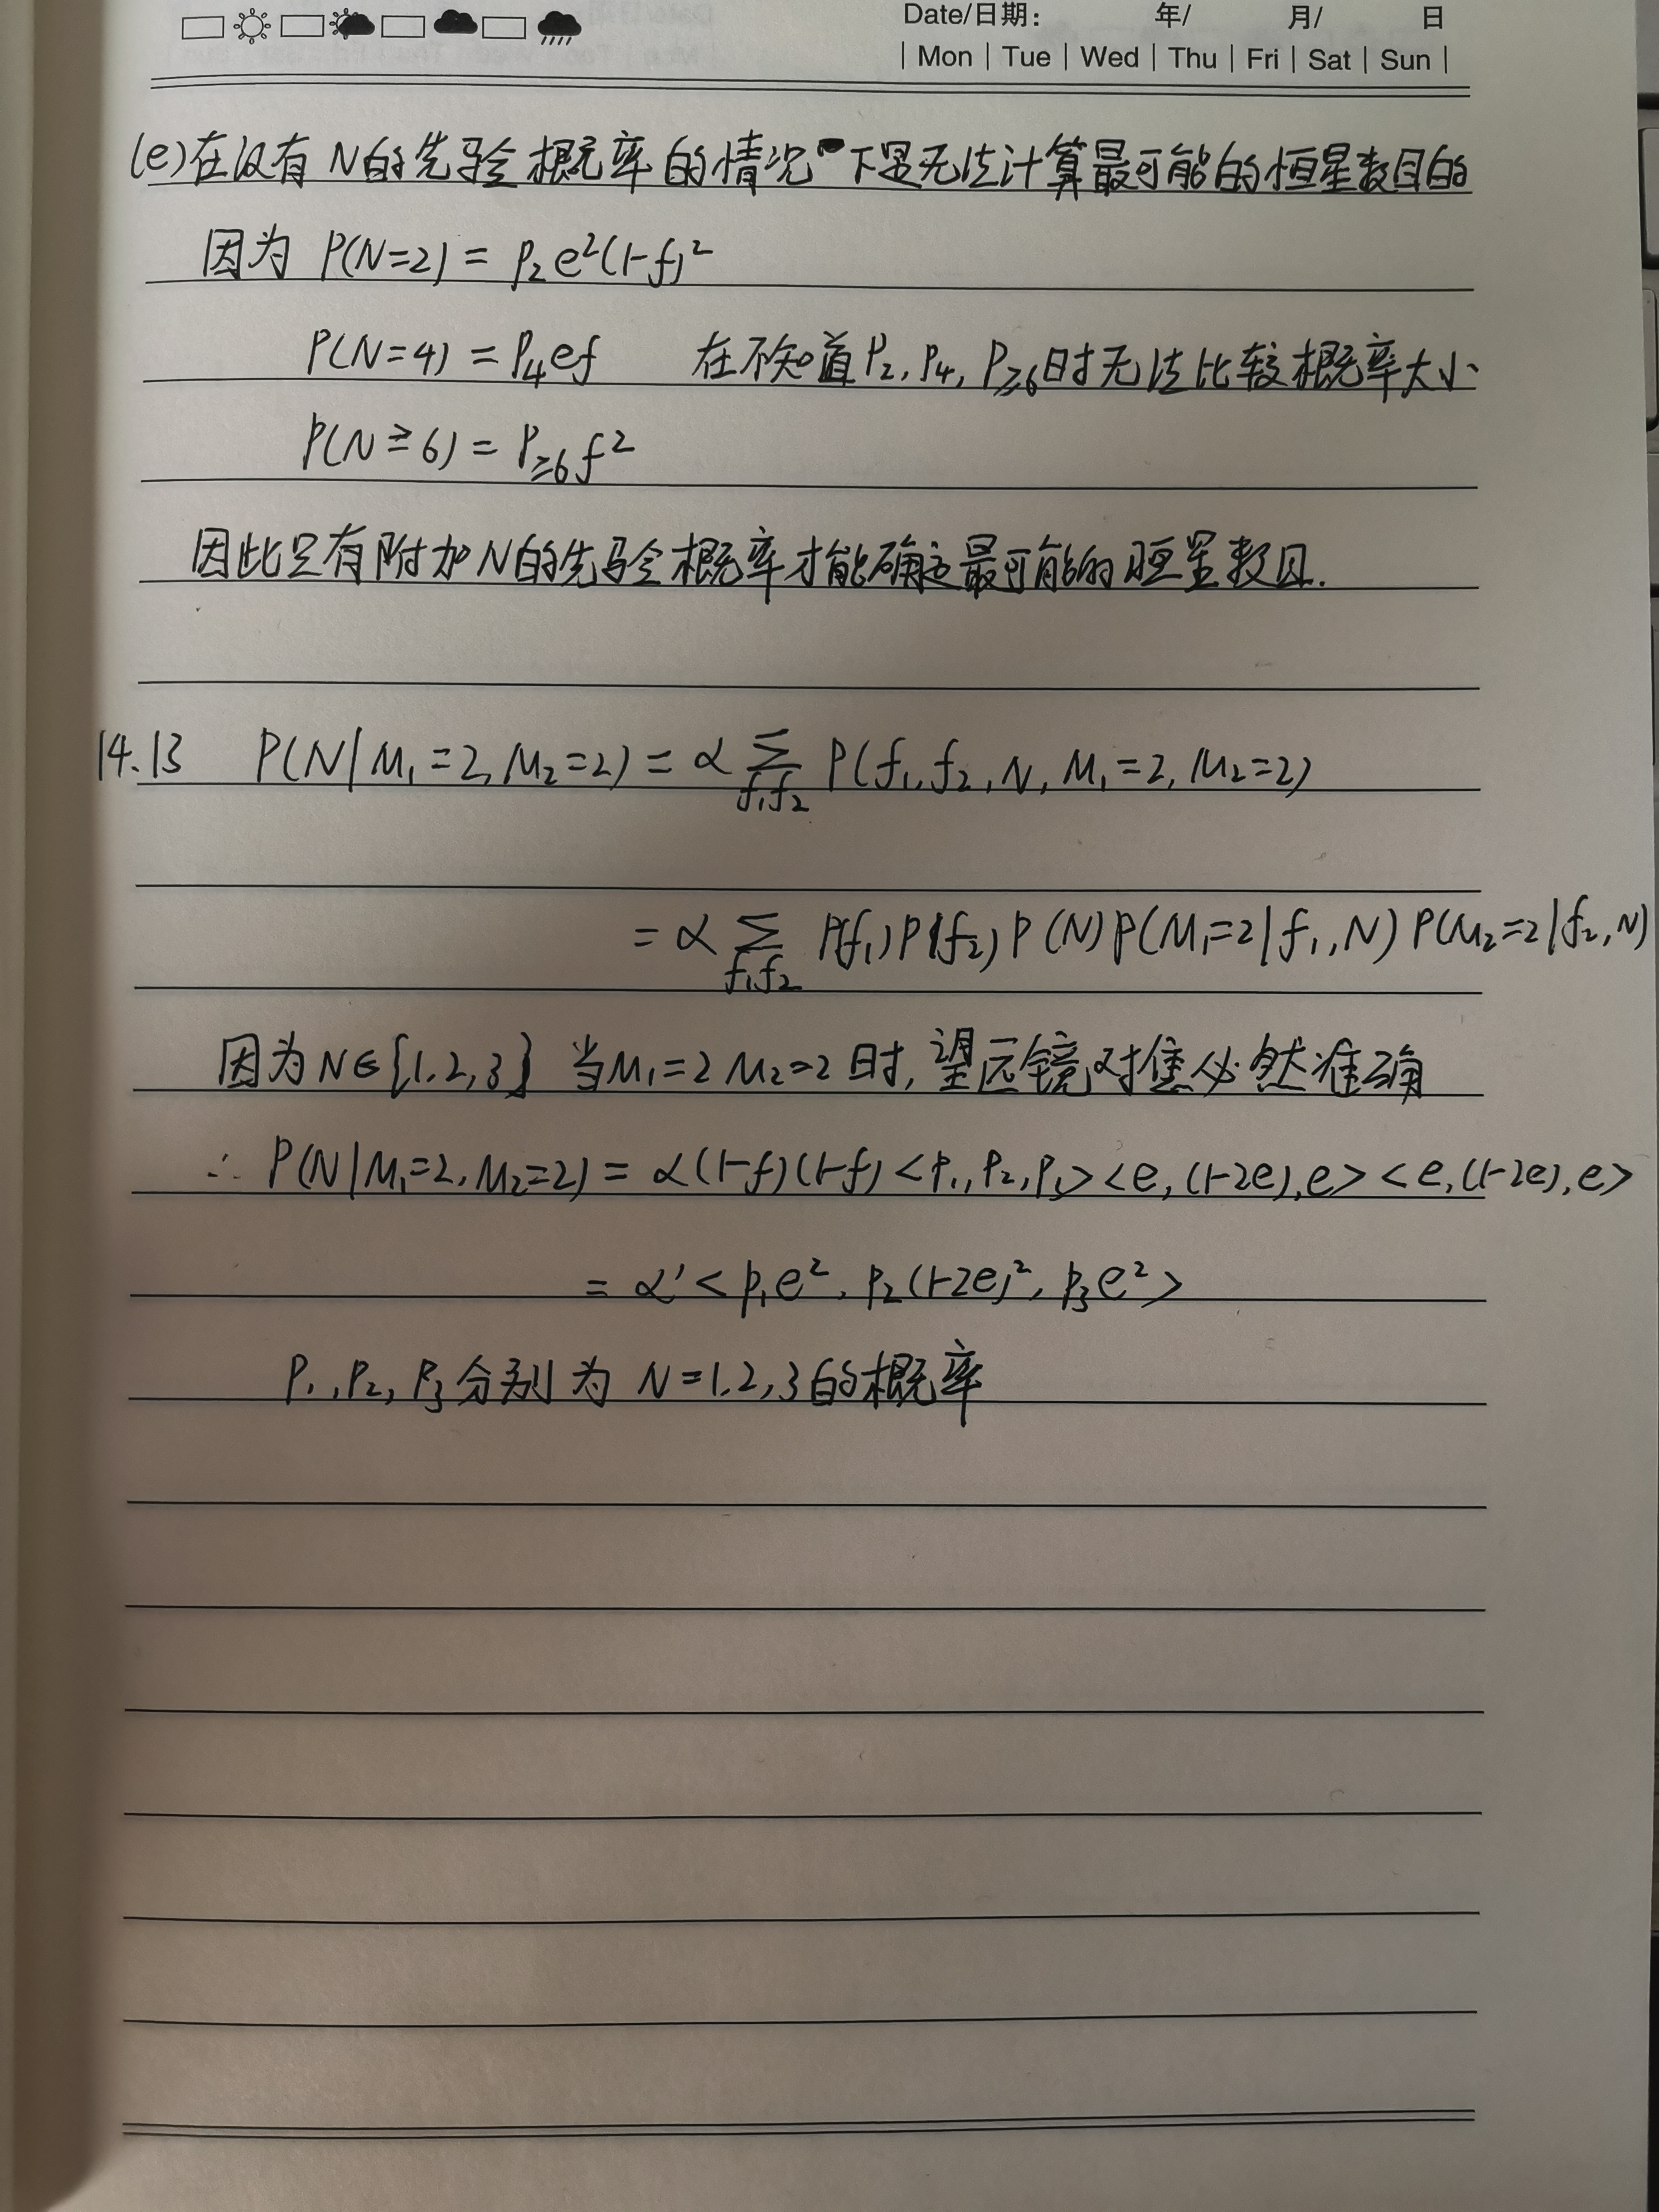 Date/日期: 年/ 月/ 日
| Mon | Tue | Wed | Thu | Fri | Sat | Sun |
(e)在没有N的先验概率的情况下是无法计算最可能的恒星数目的
因为 P(N=2) = P₂e²(1-f)²
P(N=4) = P₄ef 在不知道P₂, P₄, P≥₆时无法比较概率大小
P(N≥6) = P≥₆f²
因此只有附加N的先验概率才能确定最可能的恒星数目.
14.13 P(N|M₁=2, M₂=2) = α ∑f₁f₂ P(f₁, f₂, N, M₁=2, M₂=2)
= α ∑f₁f₂ P(f₁)P(f₂)P(N)P(M₁=2|f₁, N)P(M₂=2|f₂, N)
因为N∈{1,2,3} 当M₁=2 M₂=2时, 望远镜对焦必然准确
∴ P(N|M₁=2, M₂=2) = α(1-f)(1-f)<P₁, P₂, P₃><e, (1-2e), e><e, (1-2e), e>
= α'<p₁e², p₂(1-2e)², p₃e²>
P₁, P₂, P₃分别为 N=1,2,3的概率